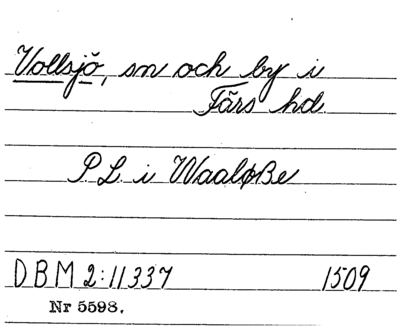 Vollsjö, sn och by i
Färs hd.
P. L. i Waaløße
DBM 2:11337 1509
Nr 5598.